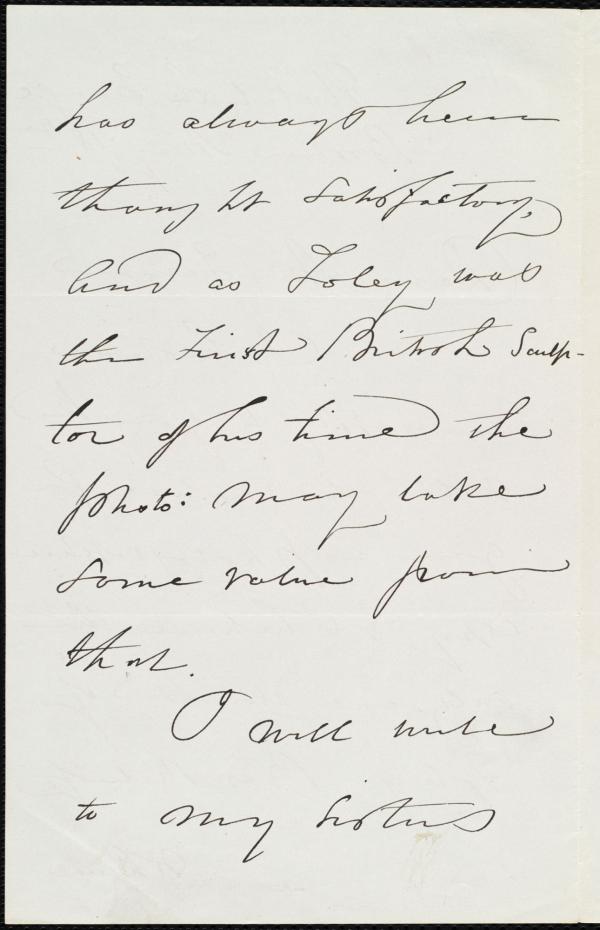 has always been
thought satisfactory,
and as Foley was
the First British Sculp-
tor of his time the
photo: may take
some value from
that.
I will write
to my sisters